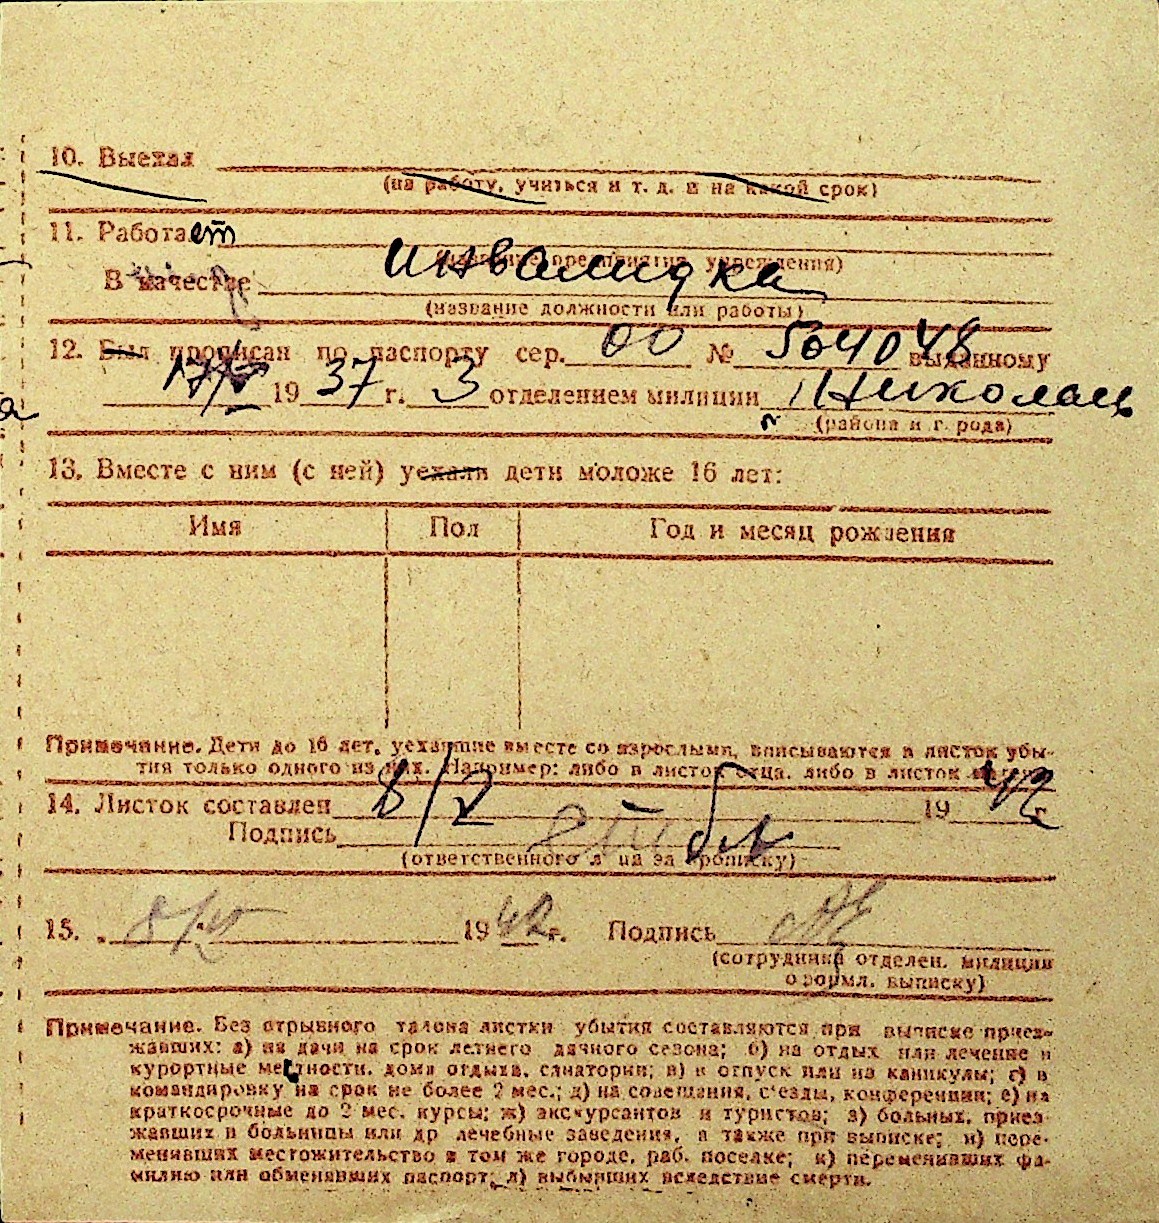 10. Выехал
(на работу, учиться и т. д. и на какой срок)
11. Работает
(название предприятия, учреждения)
В качестве инвалидка
(название должности или работы)
12. Был прописан по паспорту сер. 00 № 564048 выданному
19 37 г. 3 отделением милиции Николаев
(района и города)
13. Вместе с ним (с ней) уехали дети моложе 16 лет:
Имя Пол Год и месяц рождения
Примечание. Дети до 16 лет, уехавшие вместе со взрослыми, вписываются в листок убы-
тия только одного из них. Например: либо в листок отца, либо в листок матери
14. Листок составлен 8/2 19 42 г.
Подпись
(ответственного лица за прописку)
15. 19 42 г. Подпись
(сотрудника отделен. милиции
оформл. выписку)
Примечание. Без отрывного талона листки убытия составляются при выписке приез-
жавших: а) на дачи на срок летнего дачного сезона; б) на отдых или лечение в
курортные местности, дома отдыха, санатории; в) в отпуск или на каникулы; г) в
командировку на срок не более 2 мес.; д) на совещания, с'езды, конференции; е) на
краткосрочные до 2 мес. курсы; ж) экскурсантов и туристов; з) больных, приез-
жавших в больницы или др лечебные заведения, а также при выписке; и) пере-
менивших местожительство в том же городе, раб. поселке; к) переменивших фа-
милию или обменявших паспорт; л) выбывших вследствие смерти.